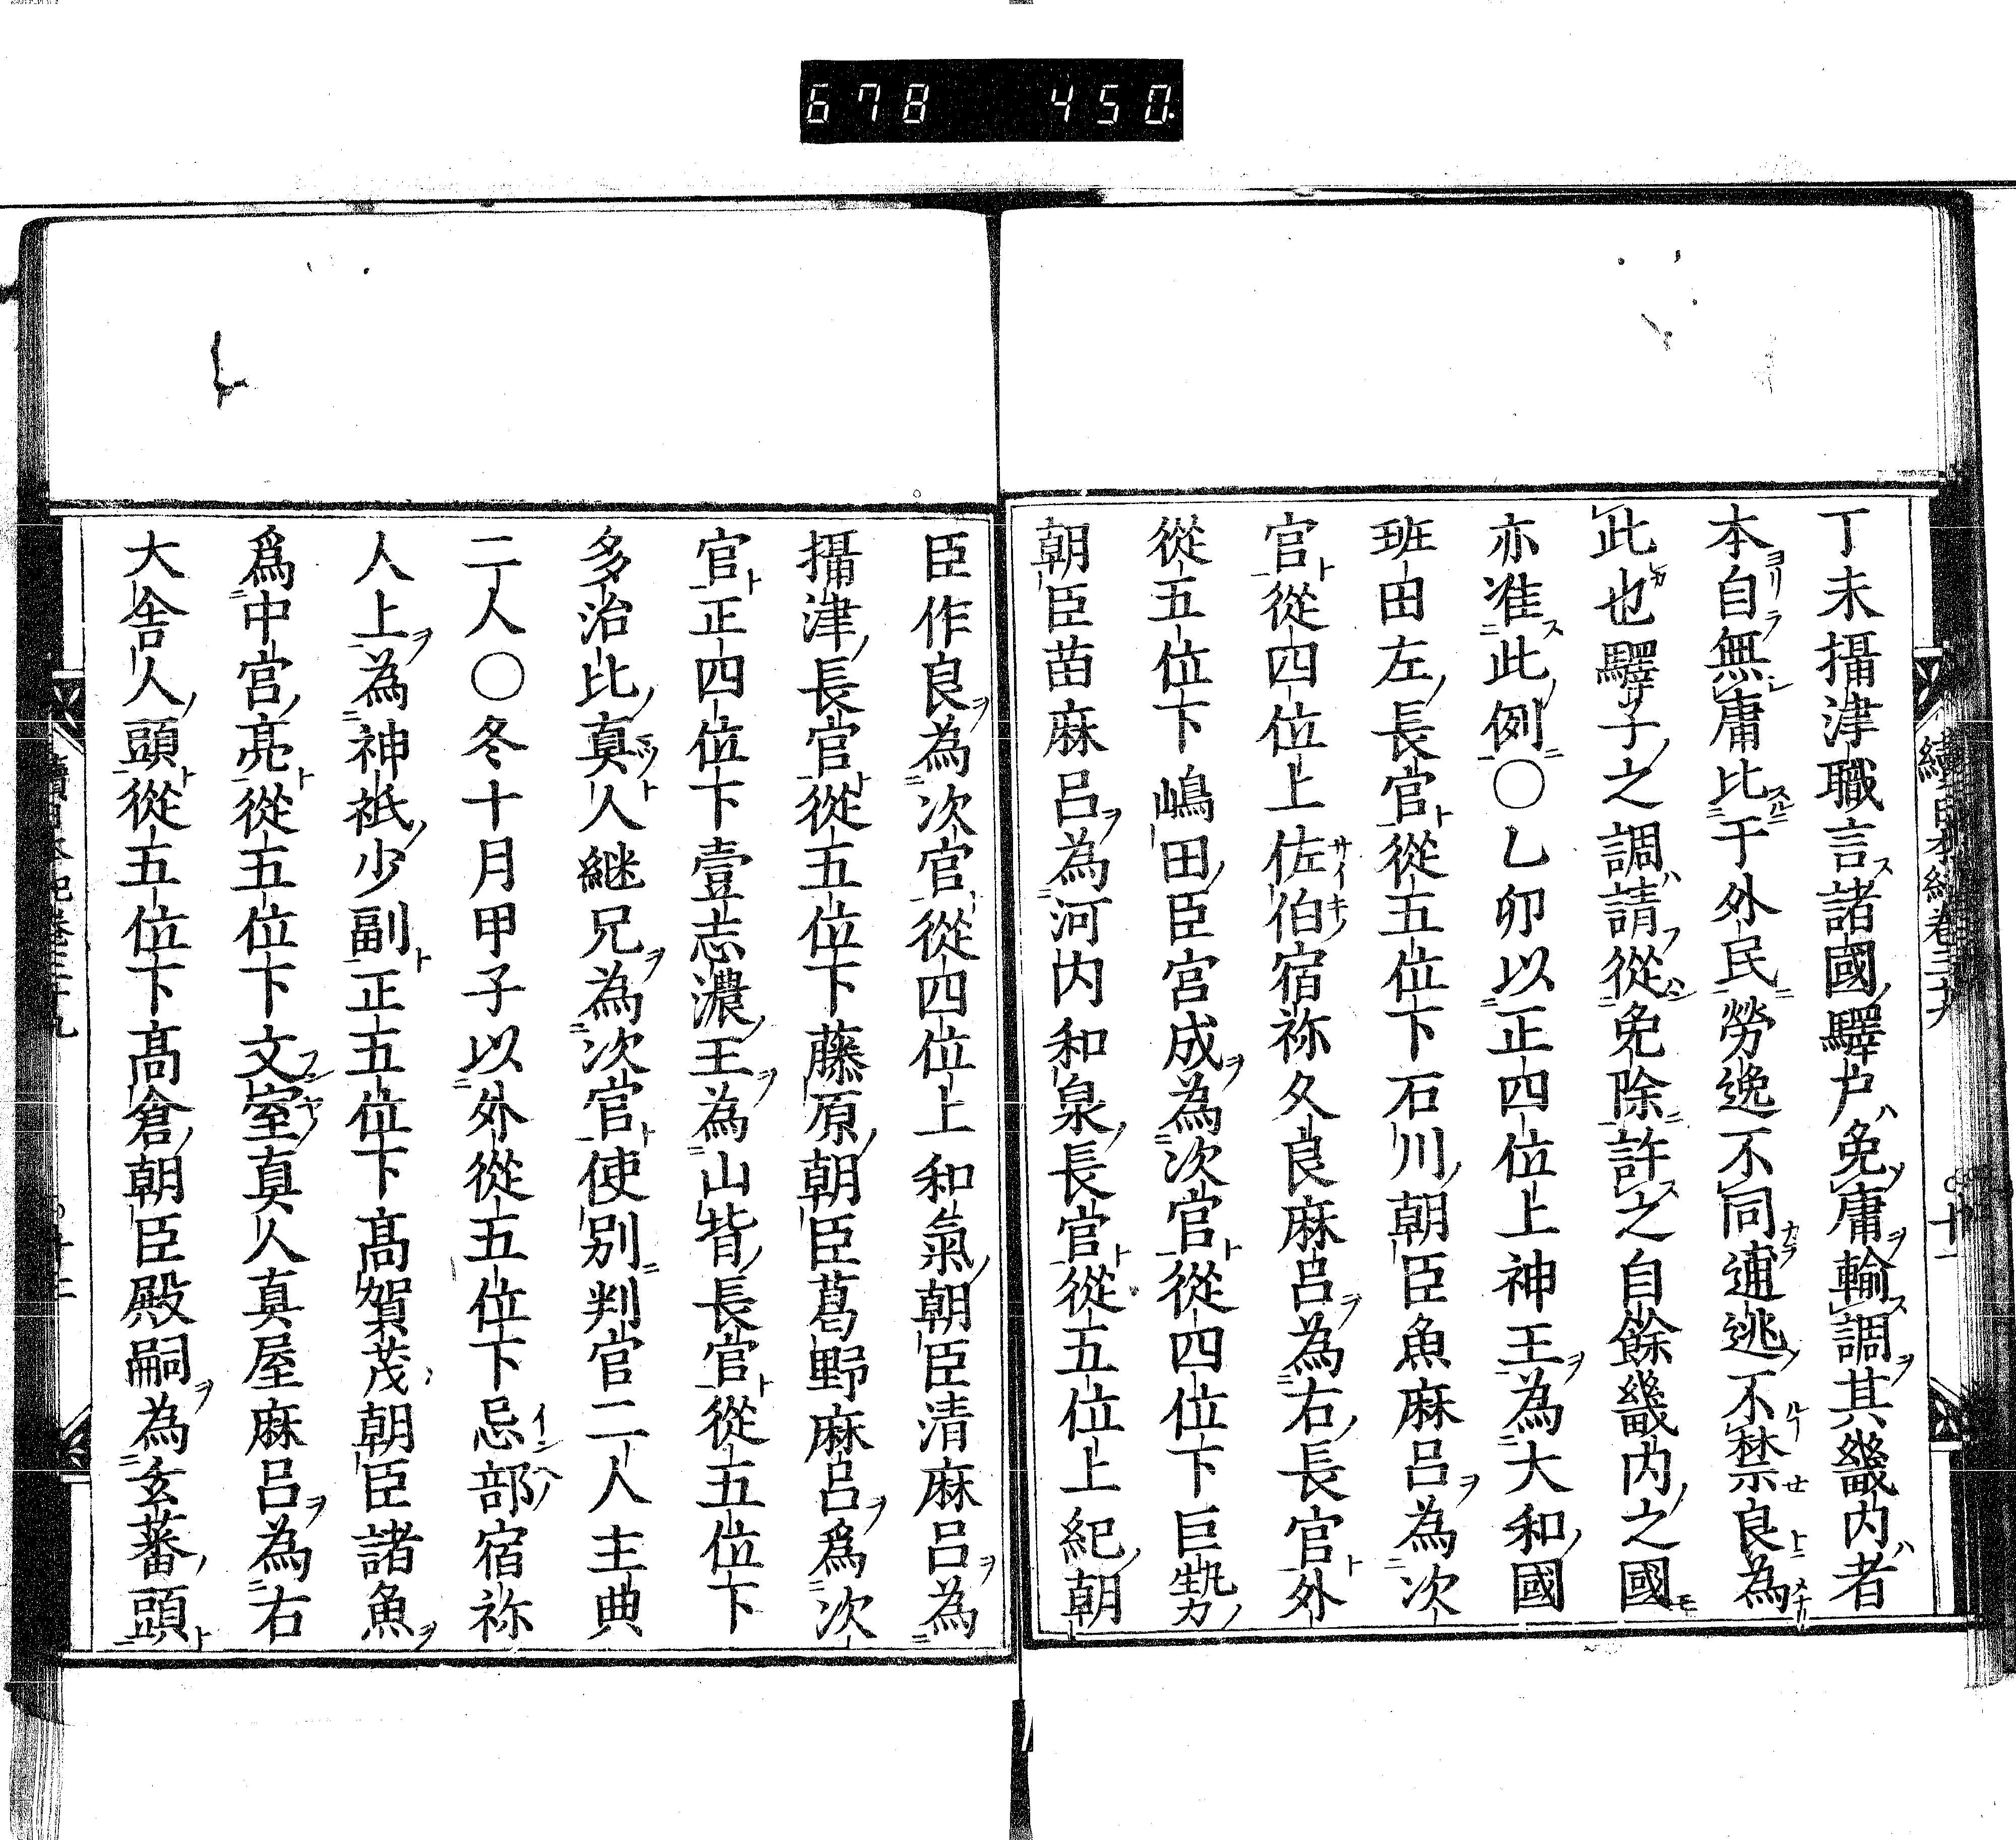 678 450.
丁未攝津職言諸國驛户免庸輸調其畿内者
本自無庸比于外民勞逸不同逋逃不禁良為
此也驛子之調請從免除許之自餘畿内之國
亦准此例〇乙卯以正四位上神王為大和國
班田左長官從五位下石川朝臣魚麻呂為次
官從四位上佐伯宿祢久良麻呂為右長官外
從五位下嶋田臣宮成為次官從四位下巨勢
朝臣苗麻呂為河内和泉長官從五位上紀朝
臣作良為次官從四位上和氣朝臣清麻呂為
攝津長官從五位下藤原朝臣葛野麻呂爲次
官正四位下壹志濃王為山背長官從五位下
多治比真人継兄為次官使別判官二人主典
二人〇冬十月甲子以外從五位下忌部宿祢
人上為神祇少副正五位下髙賀茂朝臣諸魚
爲中宮亮從五位下文室真人真屋麻呂為右
大舎人頭從五位下髙倉朝臣殿嗣為玄蕃頭